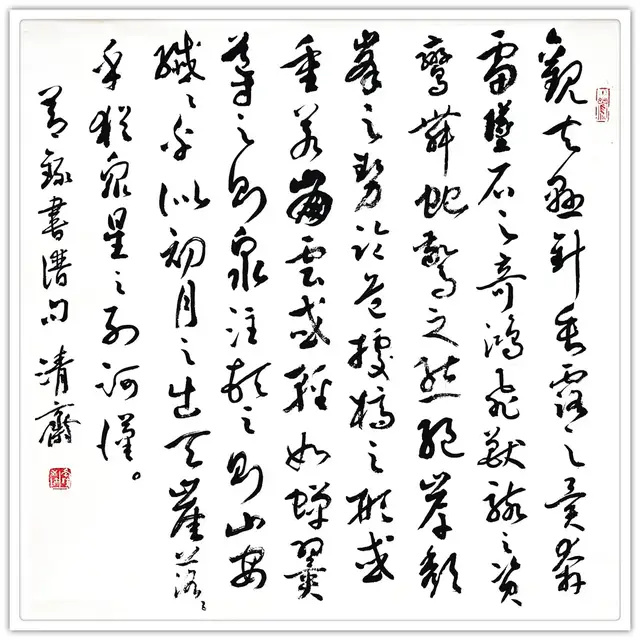 觀夫懸針垂露之異奔
雷墜石之奇鴻飛獸駭之資
鸞舞蛇驚之態絕岸頹
峯之勢臨危據槁之形或
重若崩雲或輕如蟬翼
導之則泉注頓之則山安
纖々乎似初月之出天崖落々
乎猶衆星之列河漢。
節錄書譜句 清齋